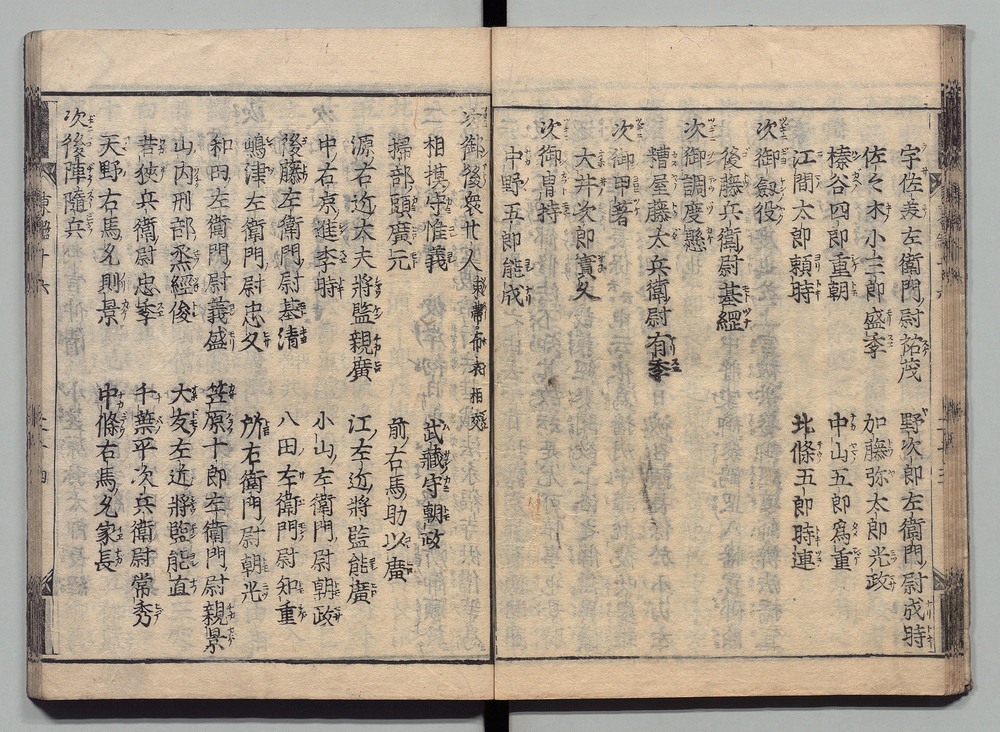 宇佐美左衛門ノ尉祐茂　野次郎左衛門ノ尉成時
佐々木小三郎盛季　加藤弥太郎光政
榛谷四郎重朝　中山五郎為重
江間太郎頼時　北條五郎時連
次御劔役
後藤兵衛ノ尉基綱
次御調度懸
糟屋藤太兵衛尉有季
次御甲着
大井次郎實久
次御冑持
中野五郎能成
次御後衆廿人 束帯布衣相交
相摸守惟義　武藏守朝政
掃部ノ頭廣元　前ノ右馬助以廣
源右近大夫將監親廣　江左近將監能廣
中右京ノ進季時　小山左衛門ノ尉朝政
後藤左衛門ノ尉基清　八田左衛門尉知重
嶋津左衛門ノ尉忠久　所右衛門ノ尉朝光
和田左衛門尉義盛　笠原十郎左衛門ノ尉親景
山内刑部丞經俊　大友左近將監能直
若狹兵衛尉忠季　千葉平次兵衛尉常秀
天野右馬允則景　中條右馬允家長
次後陣隨兵
東鑑
十六
四